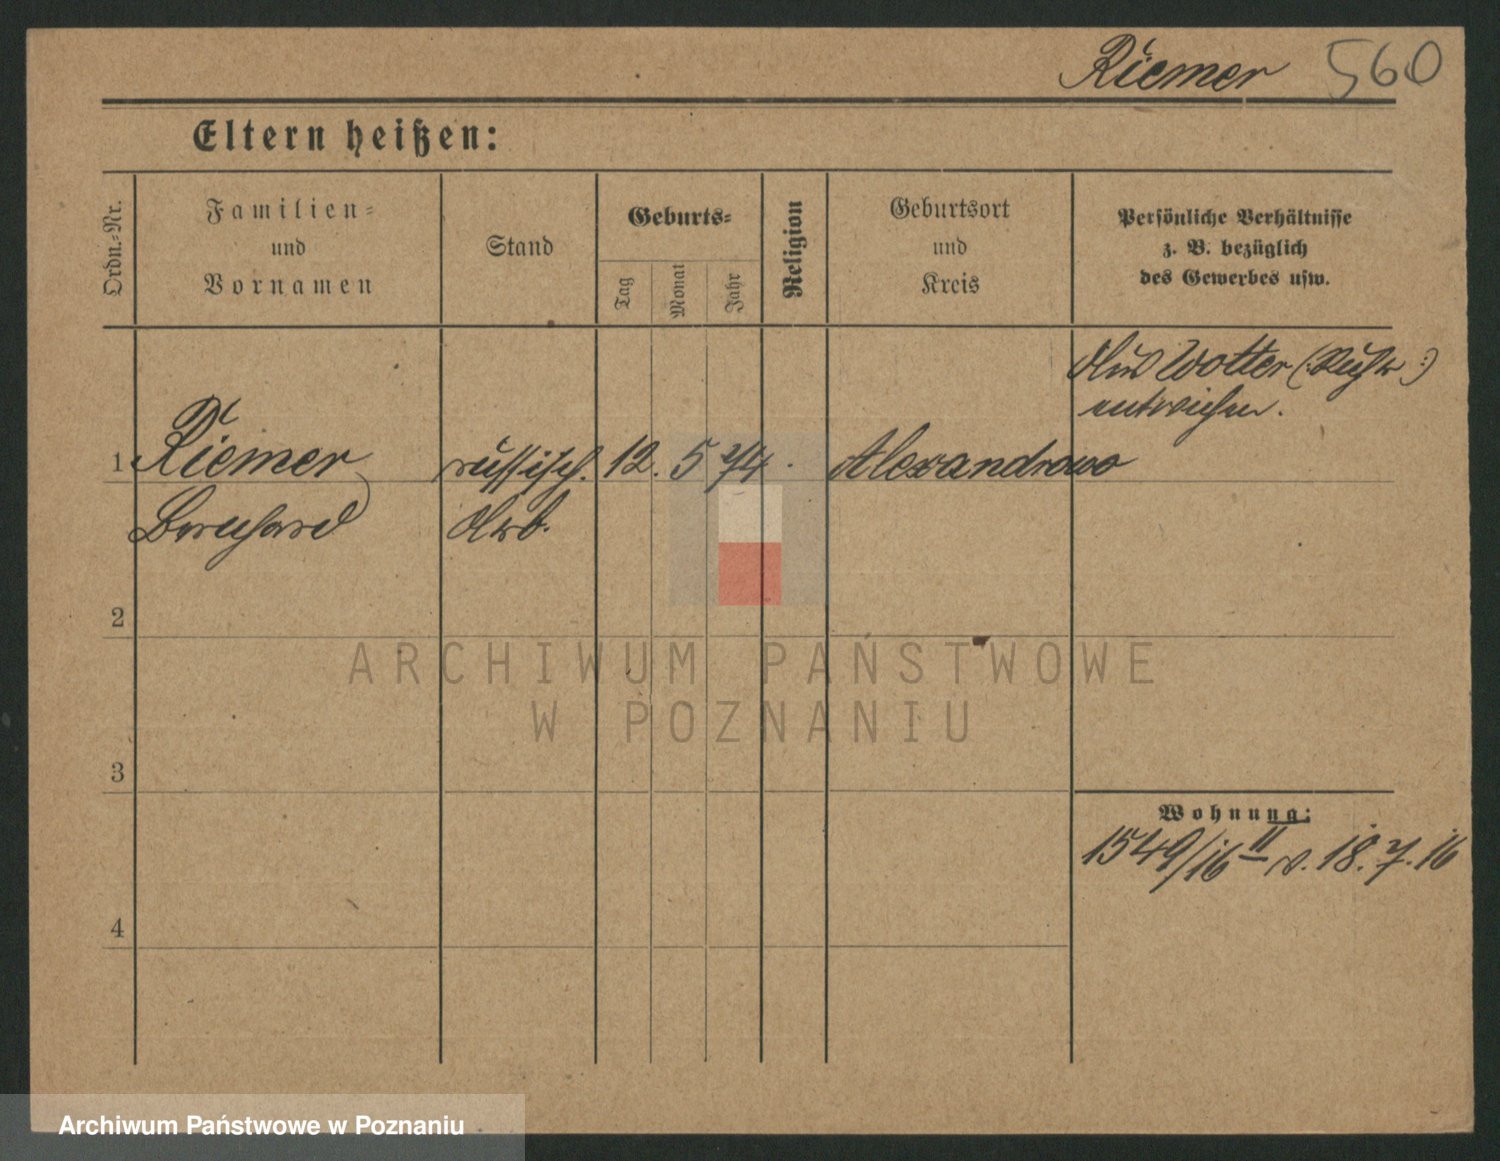 Riemer 560
Eltern heißen:
Ordn.-Nr.
Familien-
und
Vornamen
Stand
Geburts-
Tag
Monat
Jahr
Religion
Geburtsort
und
Kreis
Persönliche Verhältnisse
z. B. bezüglich
des Gewerbes usw.
Aus Wotter
entwichen.
1 Riemer russisch. 12. 5 74. Alexandrowo
Bernhard Arb.
2
3
Wohnung:
1549/16 II v. 18.7.16
4
ARCHIWUM PAŃSTWOWE
W POZNANIU
Archiwum Państwowe w Poznaniu